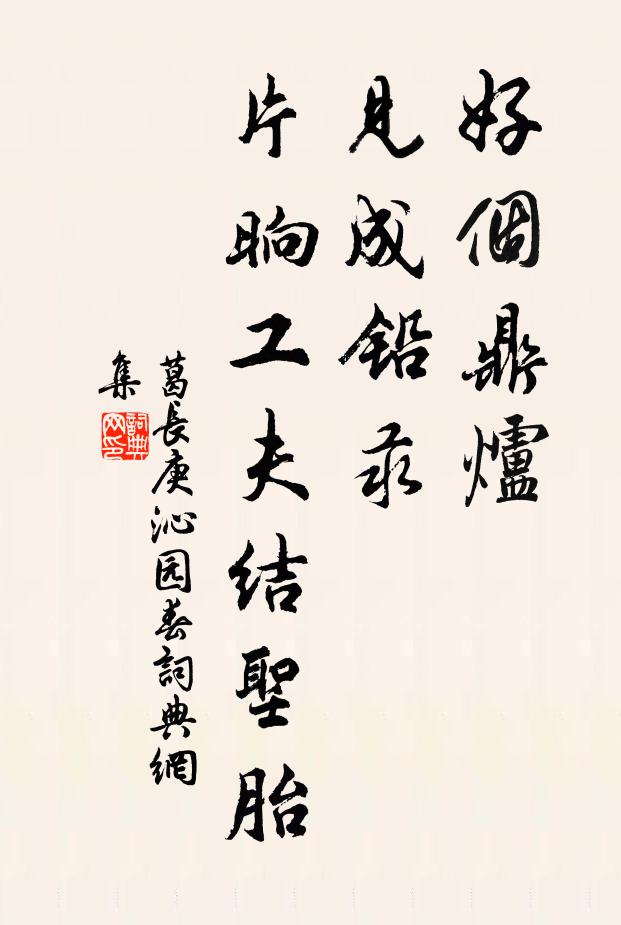 好個鼎爐
見成鉛汞
片晌工夫結聖胎
葛長庚沁园春詞典網
集
詞典网印